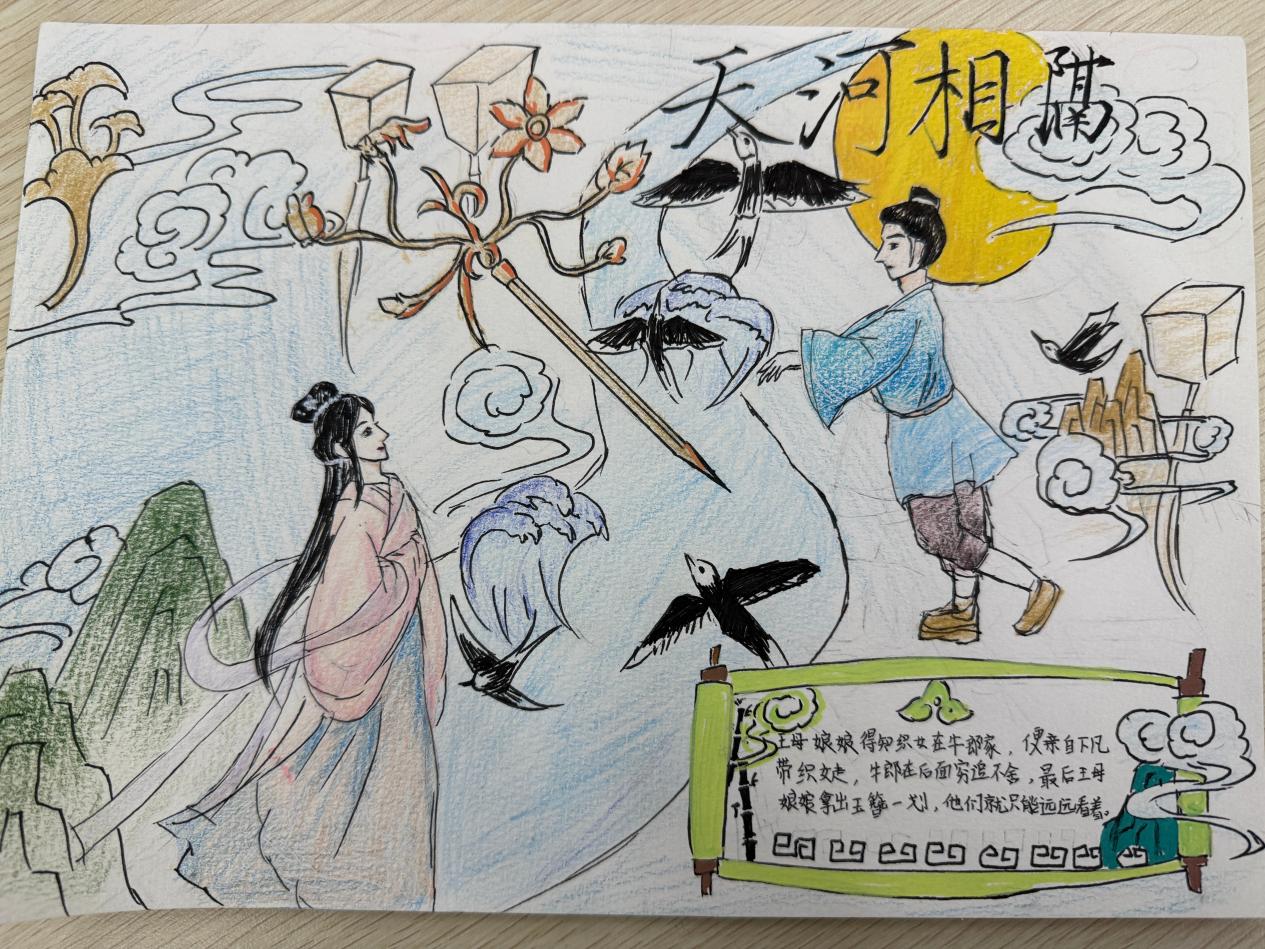 天河相隔
王母娘娘得知织女在牛郎家，便亲自下凡
带织女走，牛郎在后面穷追不舍，最后王母
娘娘拿出玉簪一划，他们就只能远远看着。